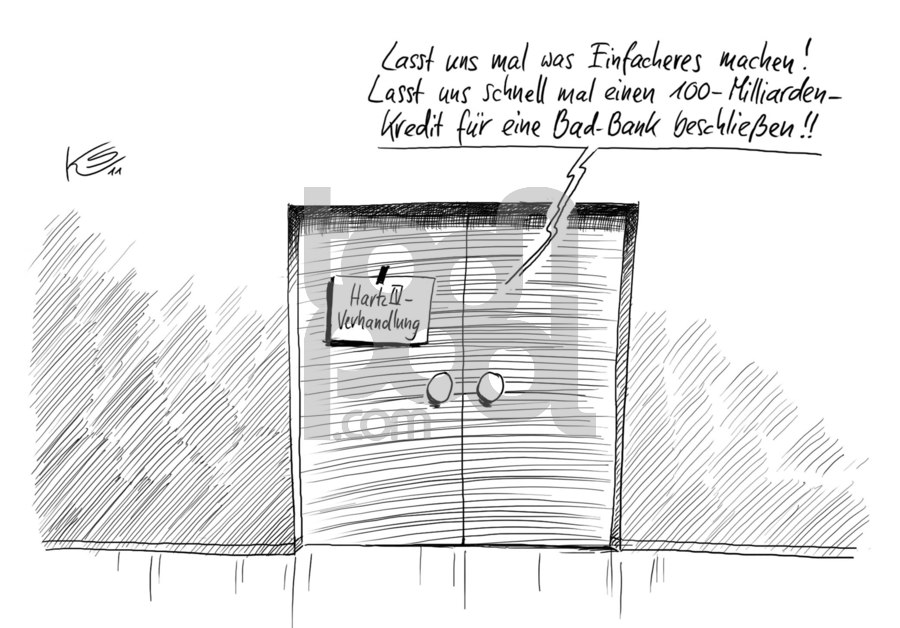 Lasst uns mal was Einfacheres machen!
Lasst uns schnell mal einen 100-Milliarden-
Kredit für eine Bad-Bank beschließen!!
KS 11
Hartz IV-
Verhandlung
toonpool
.com